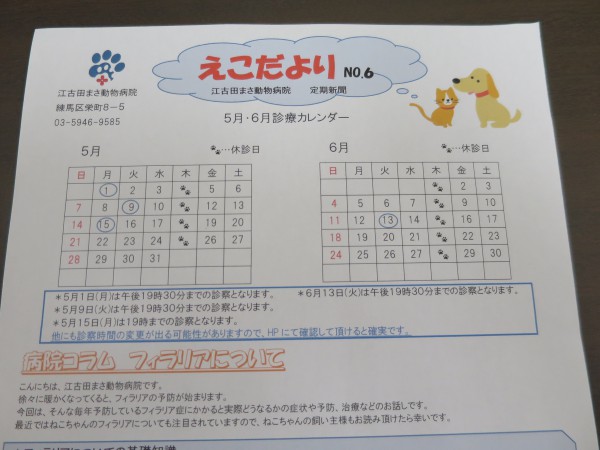 えこだより NO.6
江古田まさ動物病院
練馬区栄町8-5
03-5946-9585
江古田まさ動物病院 定期新聞
5月・6月診療カレンダー
5月 …休診日
日 月 火 水 木 金 土
1 2 3 5 6
7 8 9 10 12 13
14 15 16 17 19 20
21 22 23 24 26 27
28 29 30 31
6月 …休診日
日 月 火 水 木 金 土
2 3
4 5 6 7 9 10
11 12 13 14 16 17
18 19 20 21 22 23
24 25 26 27 29 30
*5月1日(月)は午後19時30分までの診察となります。 *6月13日(火)は午後19時30分までの診察となります。
*5月9日(火)は午後19時30分までの診察となります。
*5月15日(月)は19時までの診察となります。
他にも診察時間の変更が出る可能性がありますので、HPにて確認して頂けると確実です。
病院コラム フィラリアについて
こんにちは、江古田まさ動物病院です。
徐々に暖かくなってくると、フィラリアの予防が始まります。
今回は、そんな毎年予防しているフィラリア症にかかると実際どうなるかの症状や予防、治療などのお話しです。
最近ではねこちゃんのフィラリアについても注目されていますので、ねこちゃんの飼い主様もお読み頂けたら幸いです。